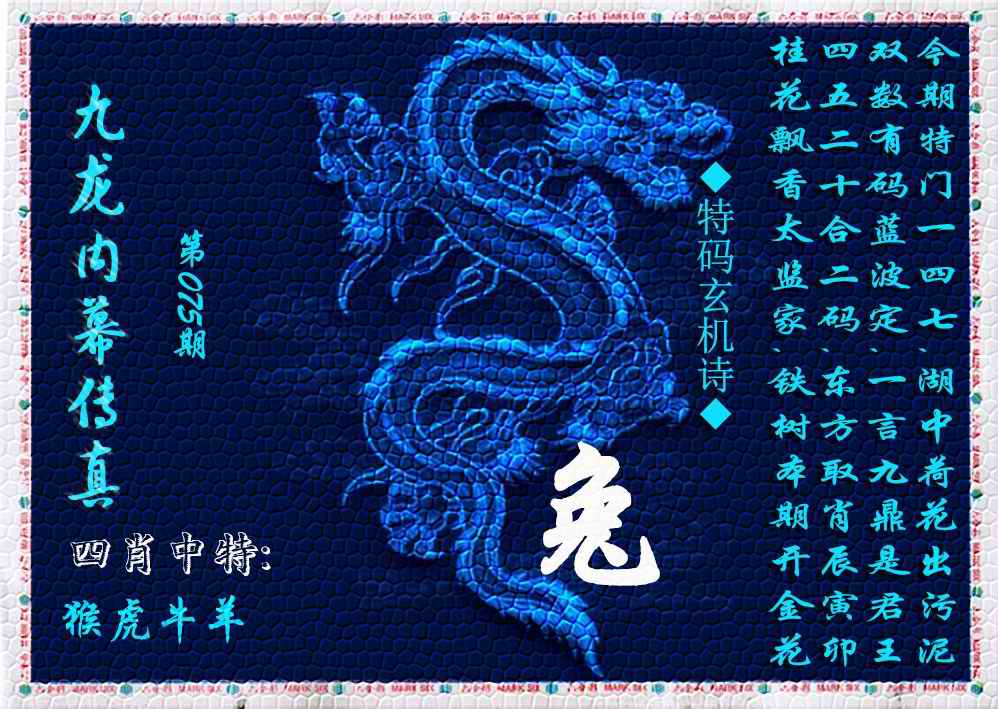 九龙内幕传真
第075期
四肖中特:
猴虎牛羊
兔
◆特码玄机诗◆
今期特门一四七、湖中荷花出污泥
双数有码蓝波定、一言九鼎是君王
四五二十合二码、东方取肖辰寅卯
桂花飘香太监家、铁树本期开金花